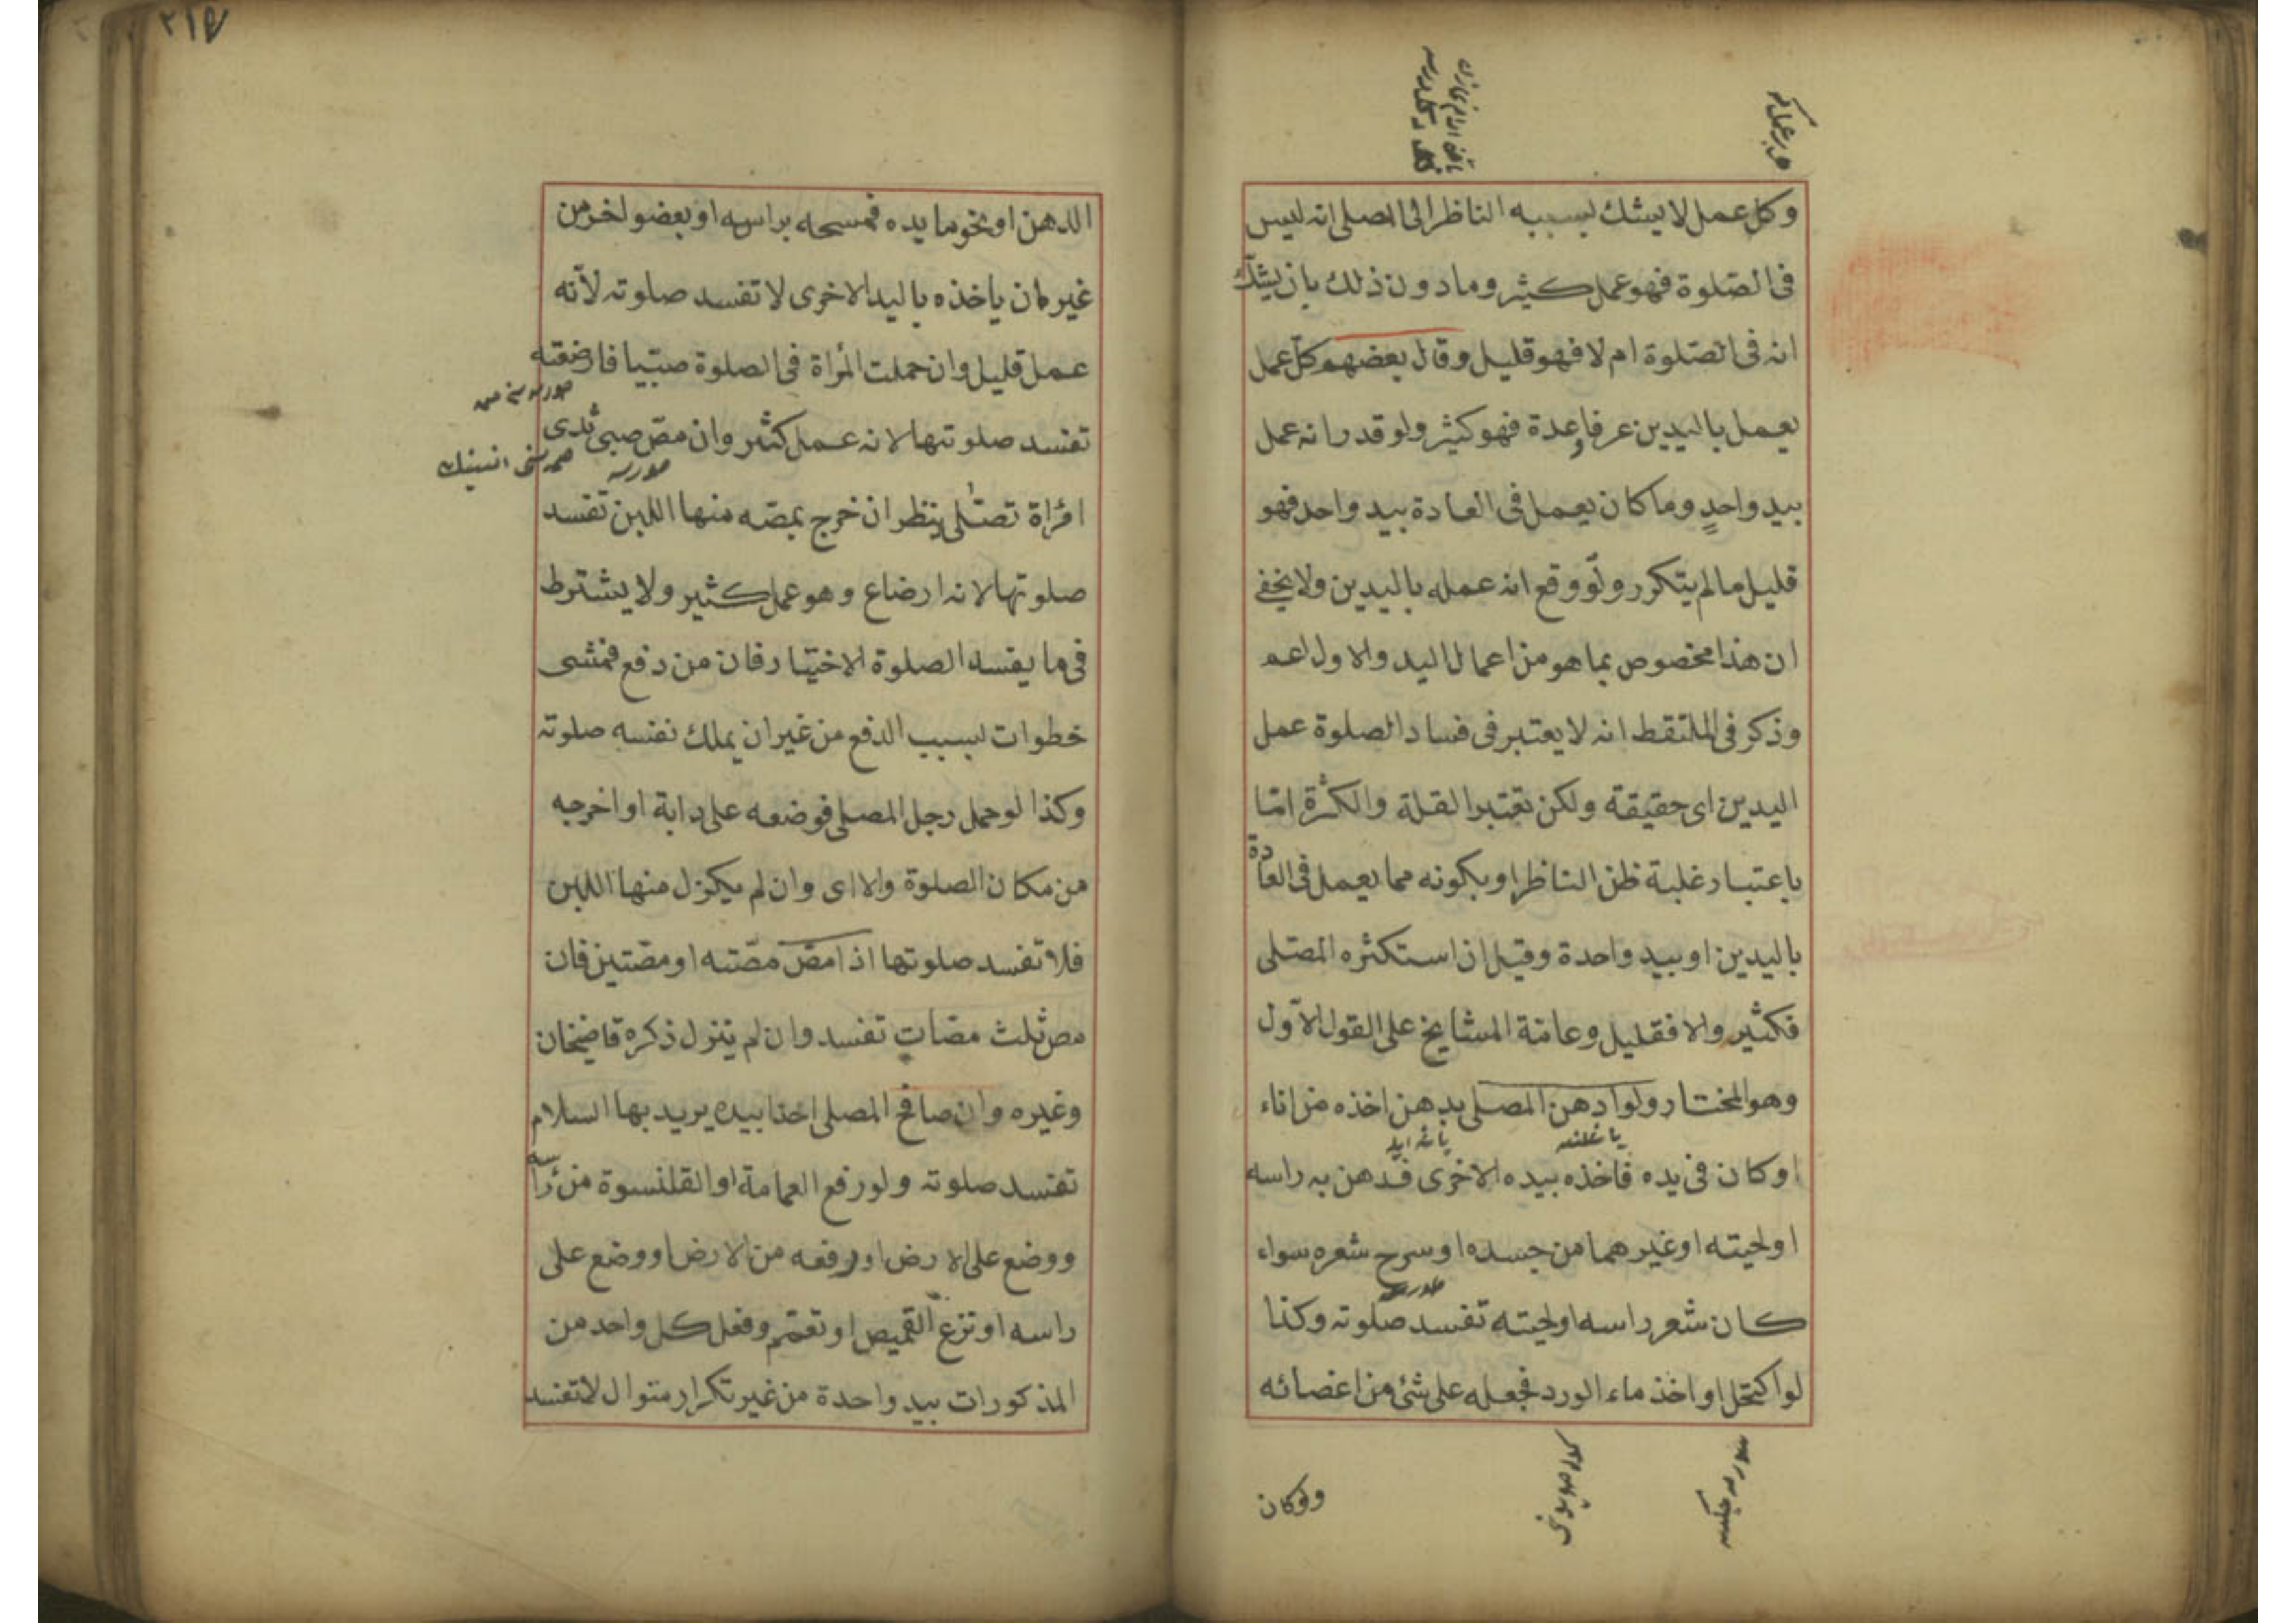 وكل عمل لا يشك بسببه الناظر الى المصلى انه ليس
فى الصّلوة فهو عمل كثير وما دون ذلك بان يشكّ
انه فى الصّلوة ام لا فهو قليل وقال بعضهم كلّ عمل
يعمل باليدين عرفا وعدة فهو كثير ولو قدر انه عمل
بيد واحدٍ وما كان يعمل فى العادة بيد واحد فهو
قليل ما لم يتكرر ولو وقع انه عمله باليدين ولا يخفى
ان هذا مخصوص بما هو من اعمال اليد والاول اعم
وذكر فى الملتقط انه لا يعتبر فى فساد الصلوة عمل
اليدين اى حقيقة ولكن تعتبر القلة والكثرة امّا
باعتبار غلبة ظن الناظر او بكونه مما يعمل فى العادة
باليدين او بيد واحدة وقيل ان استكثره المصّلى
فكثير والا فقليل وعامّة المشايخ على القول الاوّل
وهو المختار ولو ادهن المصلى بدهن اخذه من اناء
او كان فى يده فاخذه بيده الاخرى فدهن به راسه
او لحيته او غيرهما من جسده او سرح شعره سواء
كان شعر راسه او لحيته تفسد صلوته وكذا
لو اكتحل او اخذ ماء الورد فجعله على شئ من اعضائه
ولوكان
٢١٥
الدهن او نحوه ما يده فمسحه براسه او بعضو اخر من
غير ان ياخذه باليد الاخرى لا تفسد صلوته لأنّه
عمل قليل وان حملت المرأة فى الصلوة صبّيا فارضعته
تفسد صلوتها لانه عمل كثير وان مصّ صبى ثدى
امرأة تصلّى ينظر ان خرج بمصّه منها اللبن تفسد
صلوتها لانه ارضاع وهو عمل كثير ولا يشترط
فى ما يفسد الصلوة الاختيار فان من دفع فمشى
خطوات بسبب الدفع من غير ان يملك نفسه صلوته
وكذا لو حمل رجل المصلى فوضعه على دابة او اخرجه
من مكان الصلوة والا اى وان لم يكن نزل منها اللبن
فلا تفسد صلوتها اذا مصّ مصّته او مصّتين فان
مص ثلث مصّات تفسد وان لم ينزل ذكره قاضيخان
وغيره وان صافح المصلى احدا بيده يريد بها السلام
تفسد صلوته ولو رفع العمامة او القلنسوة من رأسه
ووضع على الارض او رفعه من الارض او وضع على
راسه او نزع القميص او تعمّم وفعل كل واحد من
المذكورات بيد واحدة من غير تكرار متوال لا تفسد